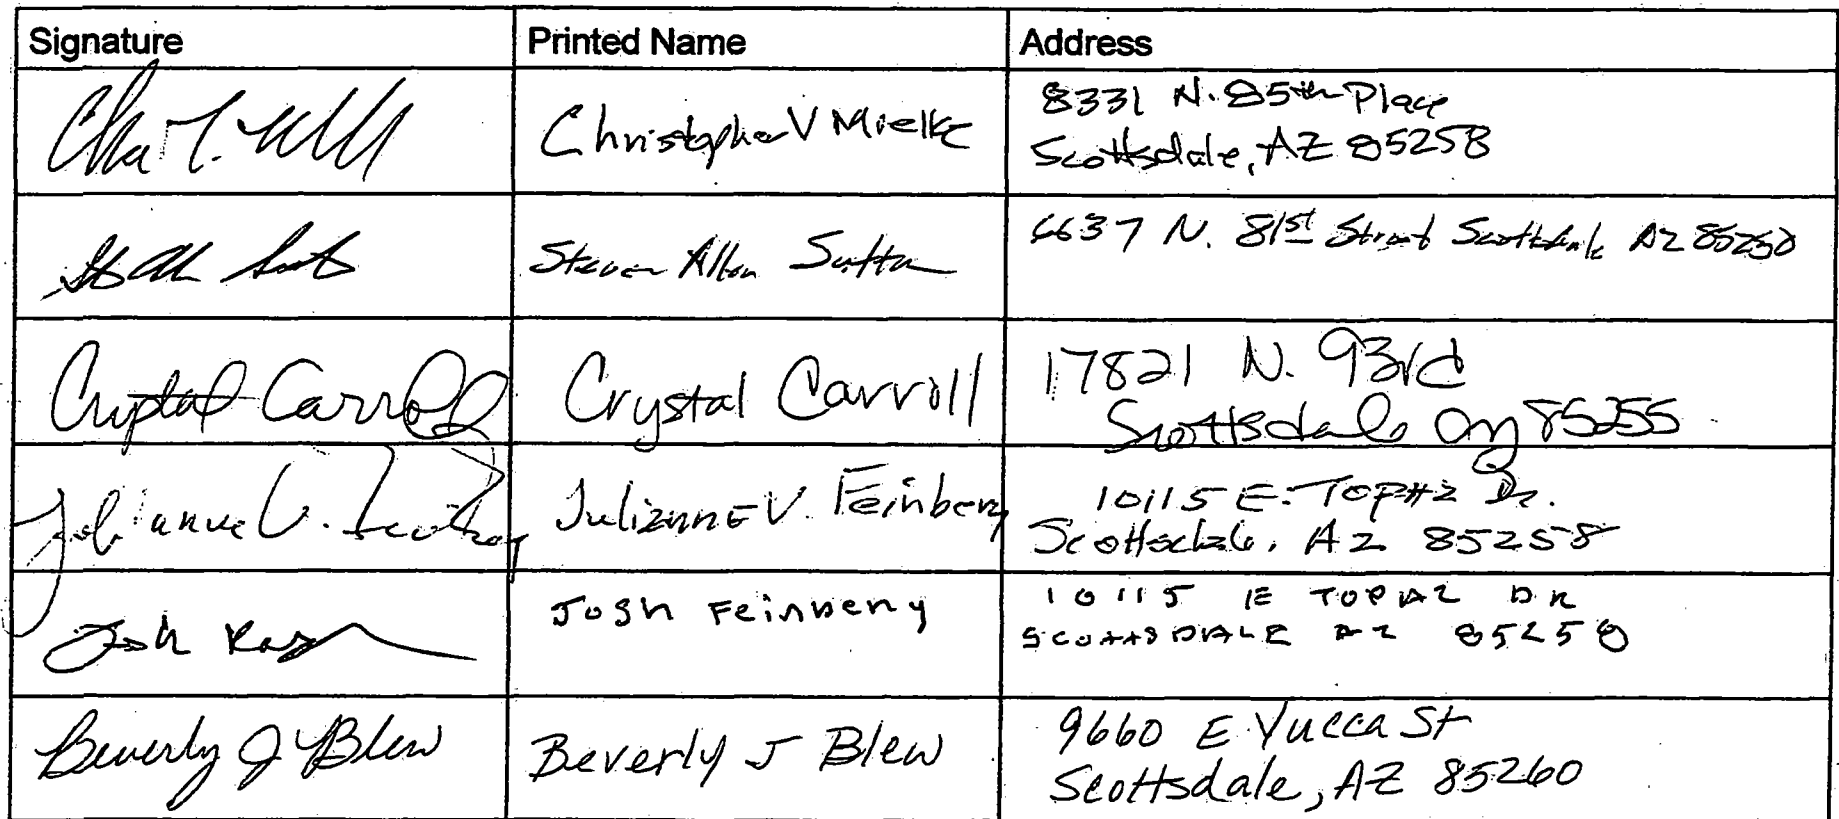 Signature Printed Name Address
Christopher V Mielke
8331 N. 85th Place
Scottsdale, AZ 85258
Steven Allen Sutton
6637 N. 81st Street Scottsdale AZ 85250
Crystal Carroll Crystal Carroll
17821 N. 93rd
Scottsdale az 85255
Julianne V. Feinberg Julianne V. Feinberg
10115 E. Topaz Dr.
Scottsdale, AZ 85258
Josh Josh Feinberg
10115 E TOPAZ DR
SCOTTSDALE AZ 85258
Beverly J Blew Beverly J Blew
9660 E Yucca St
Scottsdale, AZ 85260